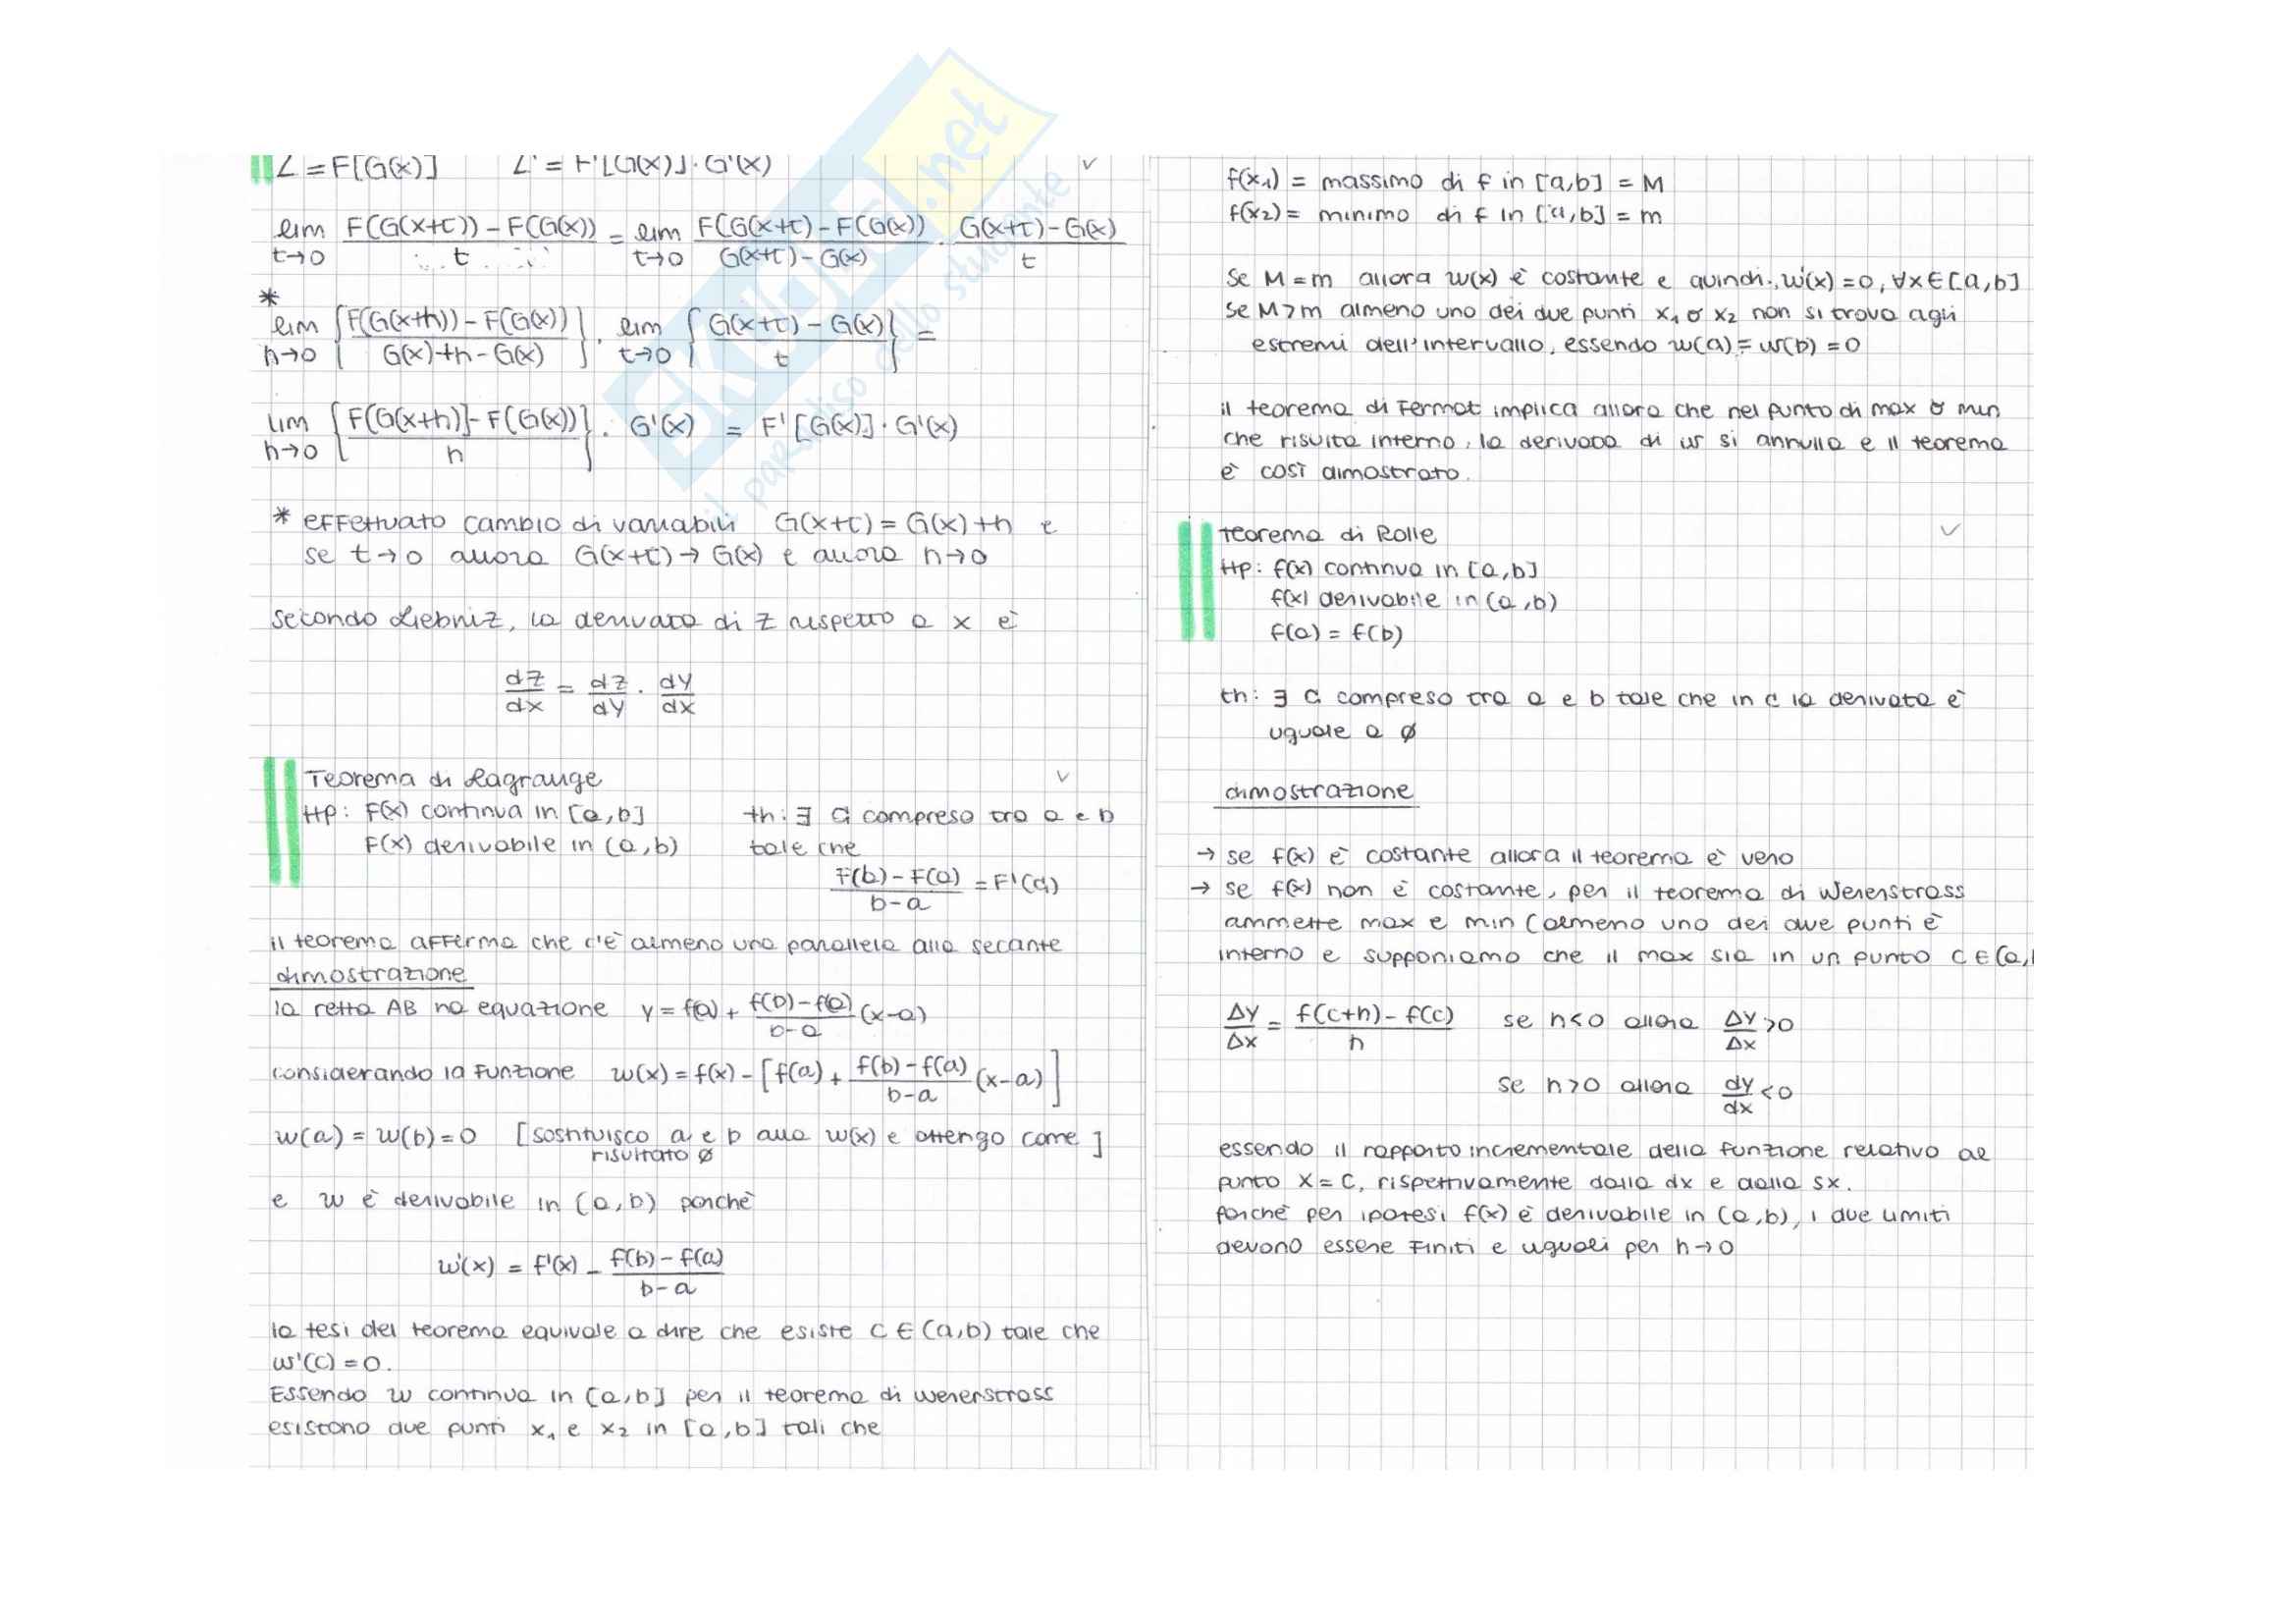 Z = F[G(x)]   Z' = F'[G(x)]·G'(x)   ✓
lim t→0 F(G(x+t)) - F(G(x)) / t = lim t→0 F(G(x+t) - F(G(x)) / G(x+t) - G(x) · G(x+t) - G(x) / t
*
lim h→0 { F(G(x+h)) - F(G(x)) / G(x)+h - G(x) } · lim t→0 { G(x+t) - G(x) / t } =
lim h→0 { F(G(x+h)] - F(G(x)) / h } · G'(x) = F'[G(x)]·G'(x)
* effettuato cambio di variabili G(x+t) = G(x)+h e
se t→0 allora G(x+t) → G(x) e allora h→0
secondo Liebniz, la derivata di Z rispetto a x è
dZ/dx = dZ/dy · dy/dx
Teorema di Lagrange   ✓
Hp: F(x) continua in [a,b]   th: ∃ C compreso tra a e b
F(x) derivabile in (a,b)   tale che
F(b) - F(a) / b-a = F'(c)
il teorema afferma che c'è almeno una parallela alla secante
dimostrazione
la retta AB ha equazione y = f(a) + f(b) - f(a) / b-a (x-a)
considerando la funzione w(x) = f(x) - [ f(a) + f(b) - f(a) / b-a (x-a) ]
w(a) = w(b) = 0 [sostituisco a e b alla w(x) e ottengo come ]
risultato ∅
e w è derivabile in (a,b) poiché
w'(x) = f'(x) - f(b) - f(a) / b-a
la tesi del teorema equivale a dire che esiste c ∈ (a,b) tale che
w'(c) = 0.
Essendo w continua in [a,b] per il teorema di Weierstrass
esistono due punti x₁ e x₂ in [a,b] tali che
f(x₁) = massimo di f in [a,b] = M
f(x₂) = minimo di f in [a,b] = m
se M = m allora w(x) è costante e quindi, w'(x) = 0, ∀x∈[a,b]
se M>m almeno uno dei due punti x₁ o x₂ non si trova agli
estremi dell'intervallo, essendo w(a) = w(b) = 0
il teorema di Fermat implica allora che nel punto di max o min
che risulta interno, la derivata di w si annulla e il teorema
è così dimostrato.
Teorema di Rolle   ✓
Hp: f(x) continua in [a,b]
f(x) derivabile in (a,b)
f(a) = f(b)
th: ∃ C compreso tra a e b tale che in c la derivata è
uguale a ∅
dimostrazione
→ se f(x) è costante allora il teorema è vero
→ se f(x) non è costante, per il teorema di Weierstrass
ammette max e min (almeno uno dei due punti è
interno e supponiamo che il max sia in un punto c ∈ (a,
Δy/Δx = f(c+h) - f(c) / h   se h<0 allora Δy/Δx >0
se h>0 allora dy/dx <0
essendo il rapporto incrementale della funzione relativo al
punto x = c, rispettivamente dalla dx e dalla sx.
poiché per ipotesi f(x) è derivabile in (a,b), i due limiti
devono essere finiti e uguali per h→0
SKUOLA.net
il paradiso dello studente